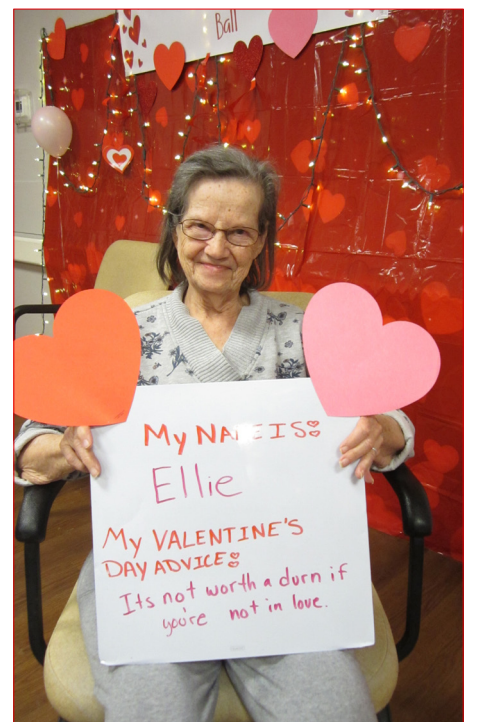 Ball
My NAME IS:
Ellie
My VALENTINE'S
DAY ADVICE:
Its not worth a durn if
you're not in love.